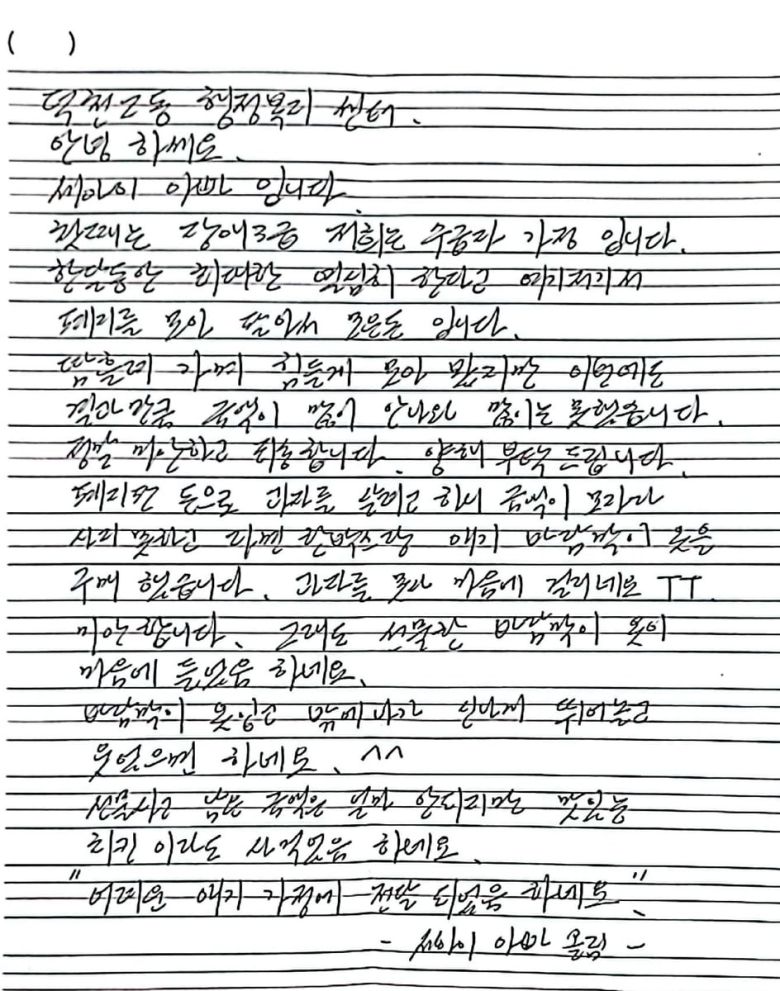 ( )
덕천2동 행정복지 센터.
안녕 하세요.
세아이 아빠 입니다.
첫째는 장애3급 저희는 수급자 가정 입니다.
한달동안 최대한 열심히 한다고 여기저기서
폐지를 모아 팔아서 모은돈 입니다.
땀흘려 가며 힘들게 모아 팔지만 이번에도
결과만큼 금액이 많이 안나와 많이는 못했습니다.
정말 미안하고 죄송합니다. 양해 부탁 드립니다.
폐지판 돈으로 과자를 살려고 하니 금액이 모자라
사지 못하고 라면 한박스랑 애기 바람막이 옷을
구매 했습니다. 과자를 못사 마음에 걸리네요 ㅜㅜ.
미안합니다. 그래도 선물한 바람막이 옷이
마음에 들었음 하네요.
바람막이 옷입고 밖에나가 신나게 뛰어놀고
웃었으면 하네요. ^^
선물사고 남은 금액은 얼마 안되지만 맛있는
치킨 이라도 사먹었음 하네요.
"어려운 애기 가정에 전달 되었음 하네요".
- 세아이 아빠 올림 -